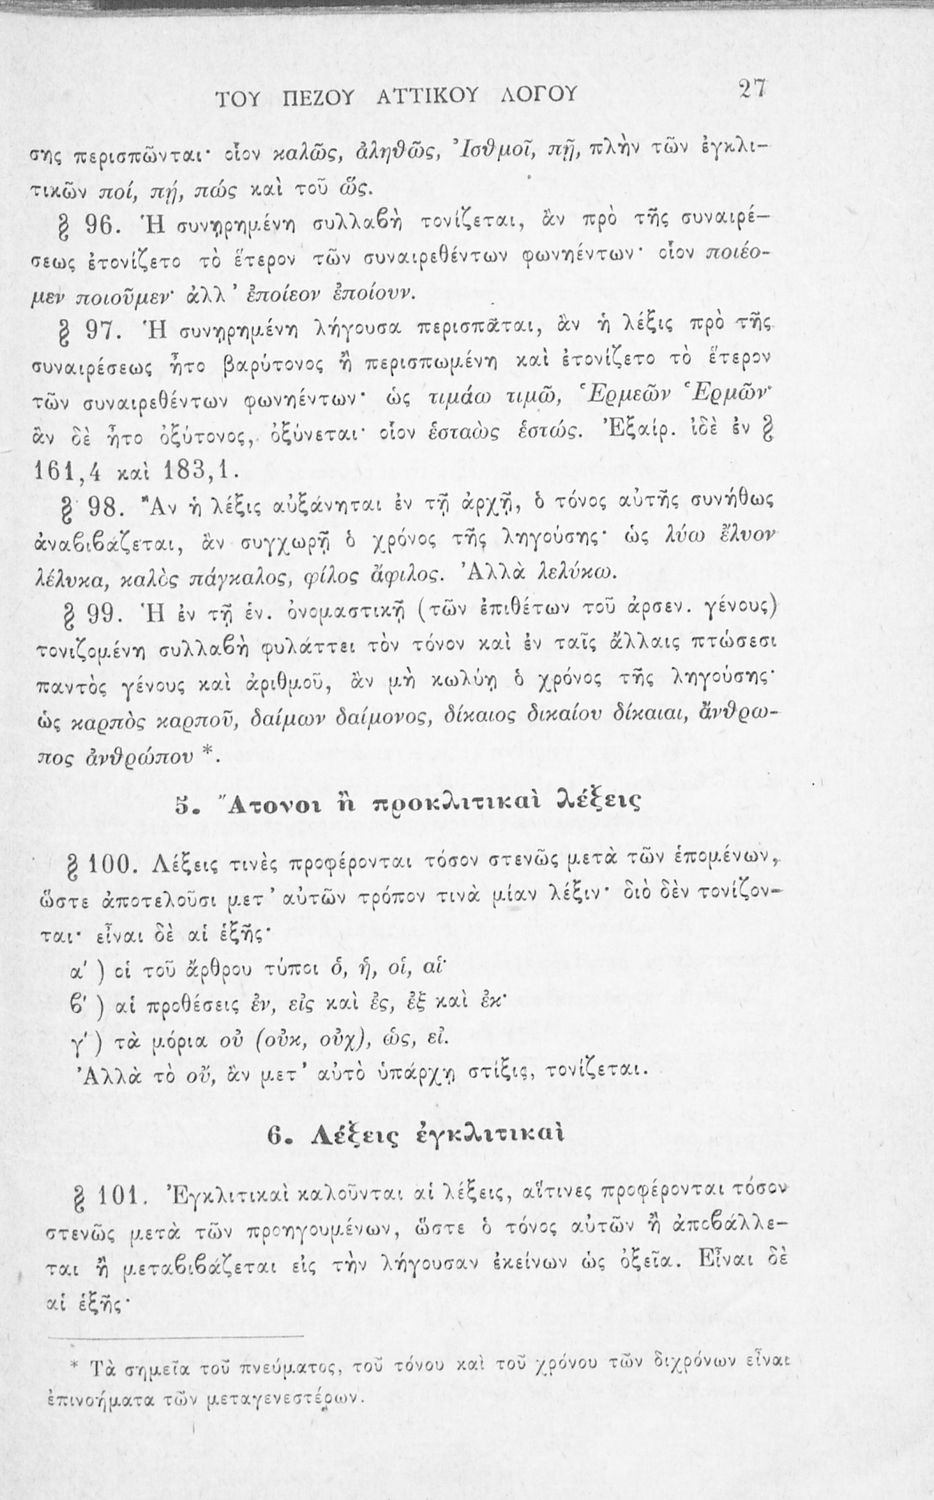 ΤΟΥ ΠΕΖΟΥ ΑΤΤΙΚΟΥ ΛΟΓΟΥ 27
σης περισπῶνται· οἷον καλῶς, ἀληθῶς, Ἰσθμοῖ, πῇ, πλὴν τῶν ἐγκλι-
τικῶν ποί, πή, πώς καὶ τοῦ ὥς.
§ 96. Ἡ συνῃρημένη συλλαβὴ τονίζεται, ἂν πρὸ τῆς συναιρέ-
σεως ἐτονίζετο τὸ ἕτερον τῶν συναιρεθέντων φωνηέντων· οἷον ποιέο-
μεν ποιοῦμεν· ἀλλ' ἐποίεον ἐποίουν.
§ 97. Ἡ συνῃρημένη λήγουσα περισπᾶται, ἂν ἡ λέξις πρὸ τῆς
συναιρέσεως ἦτο βαρύτονος ἢ περισπωμένη καὶ ἐτονίζετο τὸ ἕτερον
τῶν συναιρεθέντων φωνηέντων· ὡς τιμάω τιμῶ, Ἑρμεῶν Ἑρμῶν·
ἂν δὲ ἦτο ὀξύτονος, ὀξύνεται· οἷον ἑσταὼς ἑστώς. Ἐξαίρ. ἰδὲ ἐν §
161,4 καὶ 183,1.
§ 98. Ἂν ἡ λέξις αὐξάνηται ἐν τῇ ἀρχῇ, ὁ τόνος αὐτῆς συνήθως
ἀναβιβάζεται, ἂν συγχωρῇ ὁ χρόνος τῆς ληγούσης· ὡς λύω ἔλυον
λέλυκα, καλὸς πάγκαλος, φίλος ἄφιλος. Ἀλλὰ λελύκω.
§ 99. Ἡ ἐν τῇ ἑν. ὀνομαστικῇ (τῶν ἐπιθέτων τοῦ ἀρσεν. γένους)
τονιζομένη συλλαβὴ φυλάττει τὸν τόνον καὶ ἐν ταῖς ἄλλαις πτώσεσι
παντὸς γένους καὶ ἀριθμοῦ, ἂν μὴ κωλύῃ ὁ χρόνος τῆς ληγούσης·
ὡς καρπὸς καρποῦ, δαίμων δαίμονος, δίκαιος δικαίου δίκαιαι, ἄνθρω-
πος ἀνθρώπου *.
5. Ἄτονοι ἢ προκλιτικαὶ λέξεις
§ 100. Λέξεις τινὲς προφέρονται τόσον στενῶς μετὰ τῶν ἑπομένων,
ὥστε ἀποτελοῦσι μετ' αὐτῶν τρόπον τινὰ μίαν λέξιν· διὸ δὲν τονίζον-
ται· εἶναι δὲ αἱ ἑξῆς·
α' ) οἱ τοῦ ἄρθρου τύποι ὁ, ἡ, οἱ, αἱ·
β' ) αἱ προθέσεις ἐν, εἰς καὶ ἐς, ἐξ καὶ ἐκ·
γ' ) τὰ μόρια οὐ (οὐκ, οὐχ), ὡς, εἰ.
Ἀλλὰ τὸ οὔ, ἂν μετ' αὐτὸ ὑπάρχῃ στίξις, τονίζεται.
6. Λέξεις ἐγκλιτικαὶ
§ 101. Ἐγκλιτικαὶ καλοῦνται αἱ λέξεις, αἵτινες προφέρονται τόσον
στενῶς μετὰ τῶν προηγουμένων, ὥστε ὁ τόνος αὐτῶν ἢ ἀποβάλλε-
ται ἢ μεταβιβάζεται εἰς τὴν λήγουσαν ἐκείνων ὡς ὀξεῖα. Εἶναι δὲ
αἱ ἑξῆς·
* Τὰ σημεῖα τοῦ πνεύματος, τοῦ τόνου καὶ τοῦ χρόνου τῶν διχρόνων εἶναι
ἐπινοήματα τῶν μεταγενεστέρων.